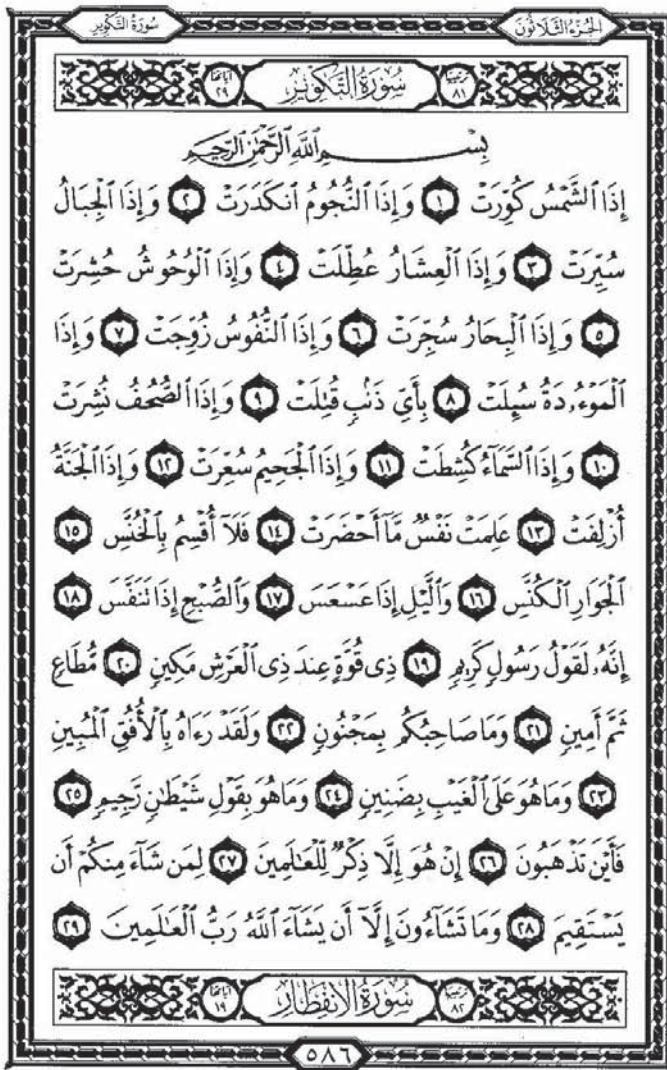 سُورَةُ التَّكْوِيرِ الجُزْءُ الثَّلَاثُونَ
ترتيبها ٨١ سُورَةُ التَّكْوِيْرِ آياتها ٢٩
بِسْمِ ٱللَّهِ ٱلرَّحْمَٰنِ ٱلرَّحِيمِ
إِذَا ٱلشَّمْسُ كُوِّرَتْ ١ وَإِذَا ٱلنُّجُومُ ٱنكَدَرَتْ ٢ وَإِذَا ٱلْجِبَالُ
سُيِّرَتْ ٣ وَإِذَا ٱلْعِشَارُ عُطِّلَتْ ٤ وَإِذَا ٱلْوُحُوشُ حُشِرَتْ
٥ وَإِذَا ٱلْبِحَارُ سُجِّرَتْ ٦ وَإِذَا ٱلنُّفُوسُ زُوِّجَتْ ٧ وَإِذَا
ٱلْمَوْءُۥدَةُ سُئِلَتْ ٨ بِأَيِّ ذَنۢبٍ قُتِلَتْ ٩ وَإِذَا ٱلصُّحُفُ نُشِرَتْ
١٠ وَإِذَا ٱلسَّمَآءُ كُشِطَتْ ١١ وَإِذَا ٱلْجَحِيمُ سُعِّرَتْ ١٢ وَإِذَا ٱلْجَنَّةُ
أُزْلِفَتْ ١٣ عَلِمَتْ نَفْسٌ مَّآ أَحْضَرَتْ ١٤ فَلَآ أُقْسِمُ بِٱلْخُنَّسِ ١٥
ٱلْجَوَارِ ٱلْكُنَّسِ ١٦ وَٱلَّيْلِ إِذَا عَسْعَسَ ١٧ وَٱلصُّبْحِ إِذَا تَنَفَّسَ ١٨
إِنَّهُۥ لَقَوْلُ رَسُولٍ كَرِيمٍ ١٩ ذِى قُوَّةٍ عِندَ ذِى ٱلْعَرْشِ مَكِينٍ ٢٠ مُّطَاعٍ
ثَمَّ أَمِينٍ ٢١ وَمَا صَاحِبُكُم بِمَجْنُونٍ ٢٢ وَلَقَدْ رَءَاهُ بِٱلْأُفُقِ ٱلْمُبِينِ
٢٣ وَمَا هُوَ عَلَى ٱلْغَيْبِ بِضَنِينٍ ٢٤ وَمَا هُوَ بِقَوْلِ شَيْطَٰنٍ رَّجِيمٍ ٢٥
فَأَيْنَ تَذْهَبُونَ ٢٦ إِنْ هُوَ إِلَّا ذِكْرٌ لِّلْعَٰلَمِينَ ٢٧ لِمَن شَآءَ مِنكُمْ أَن
يَسْتَقِيمَ ٢٨ وَمَا تَشَآءُونَ إِلَّآ أَن يَشَآءَ ٱللَّهُ رَبُّ ٱلْعَٰلَمِينَ ٢٩
ترتيبها ٨٢ سُورَةُ الانفِطَارِ آياتها ١٩
٥٨٦